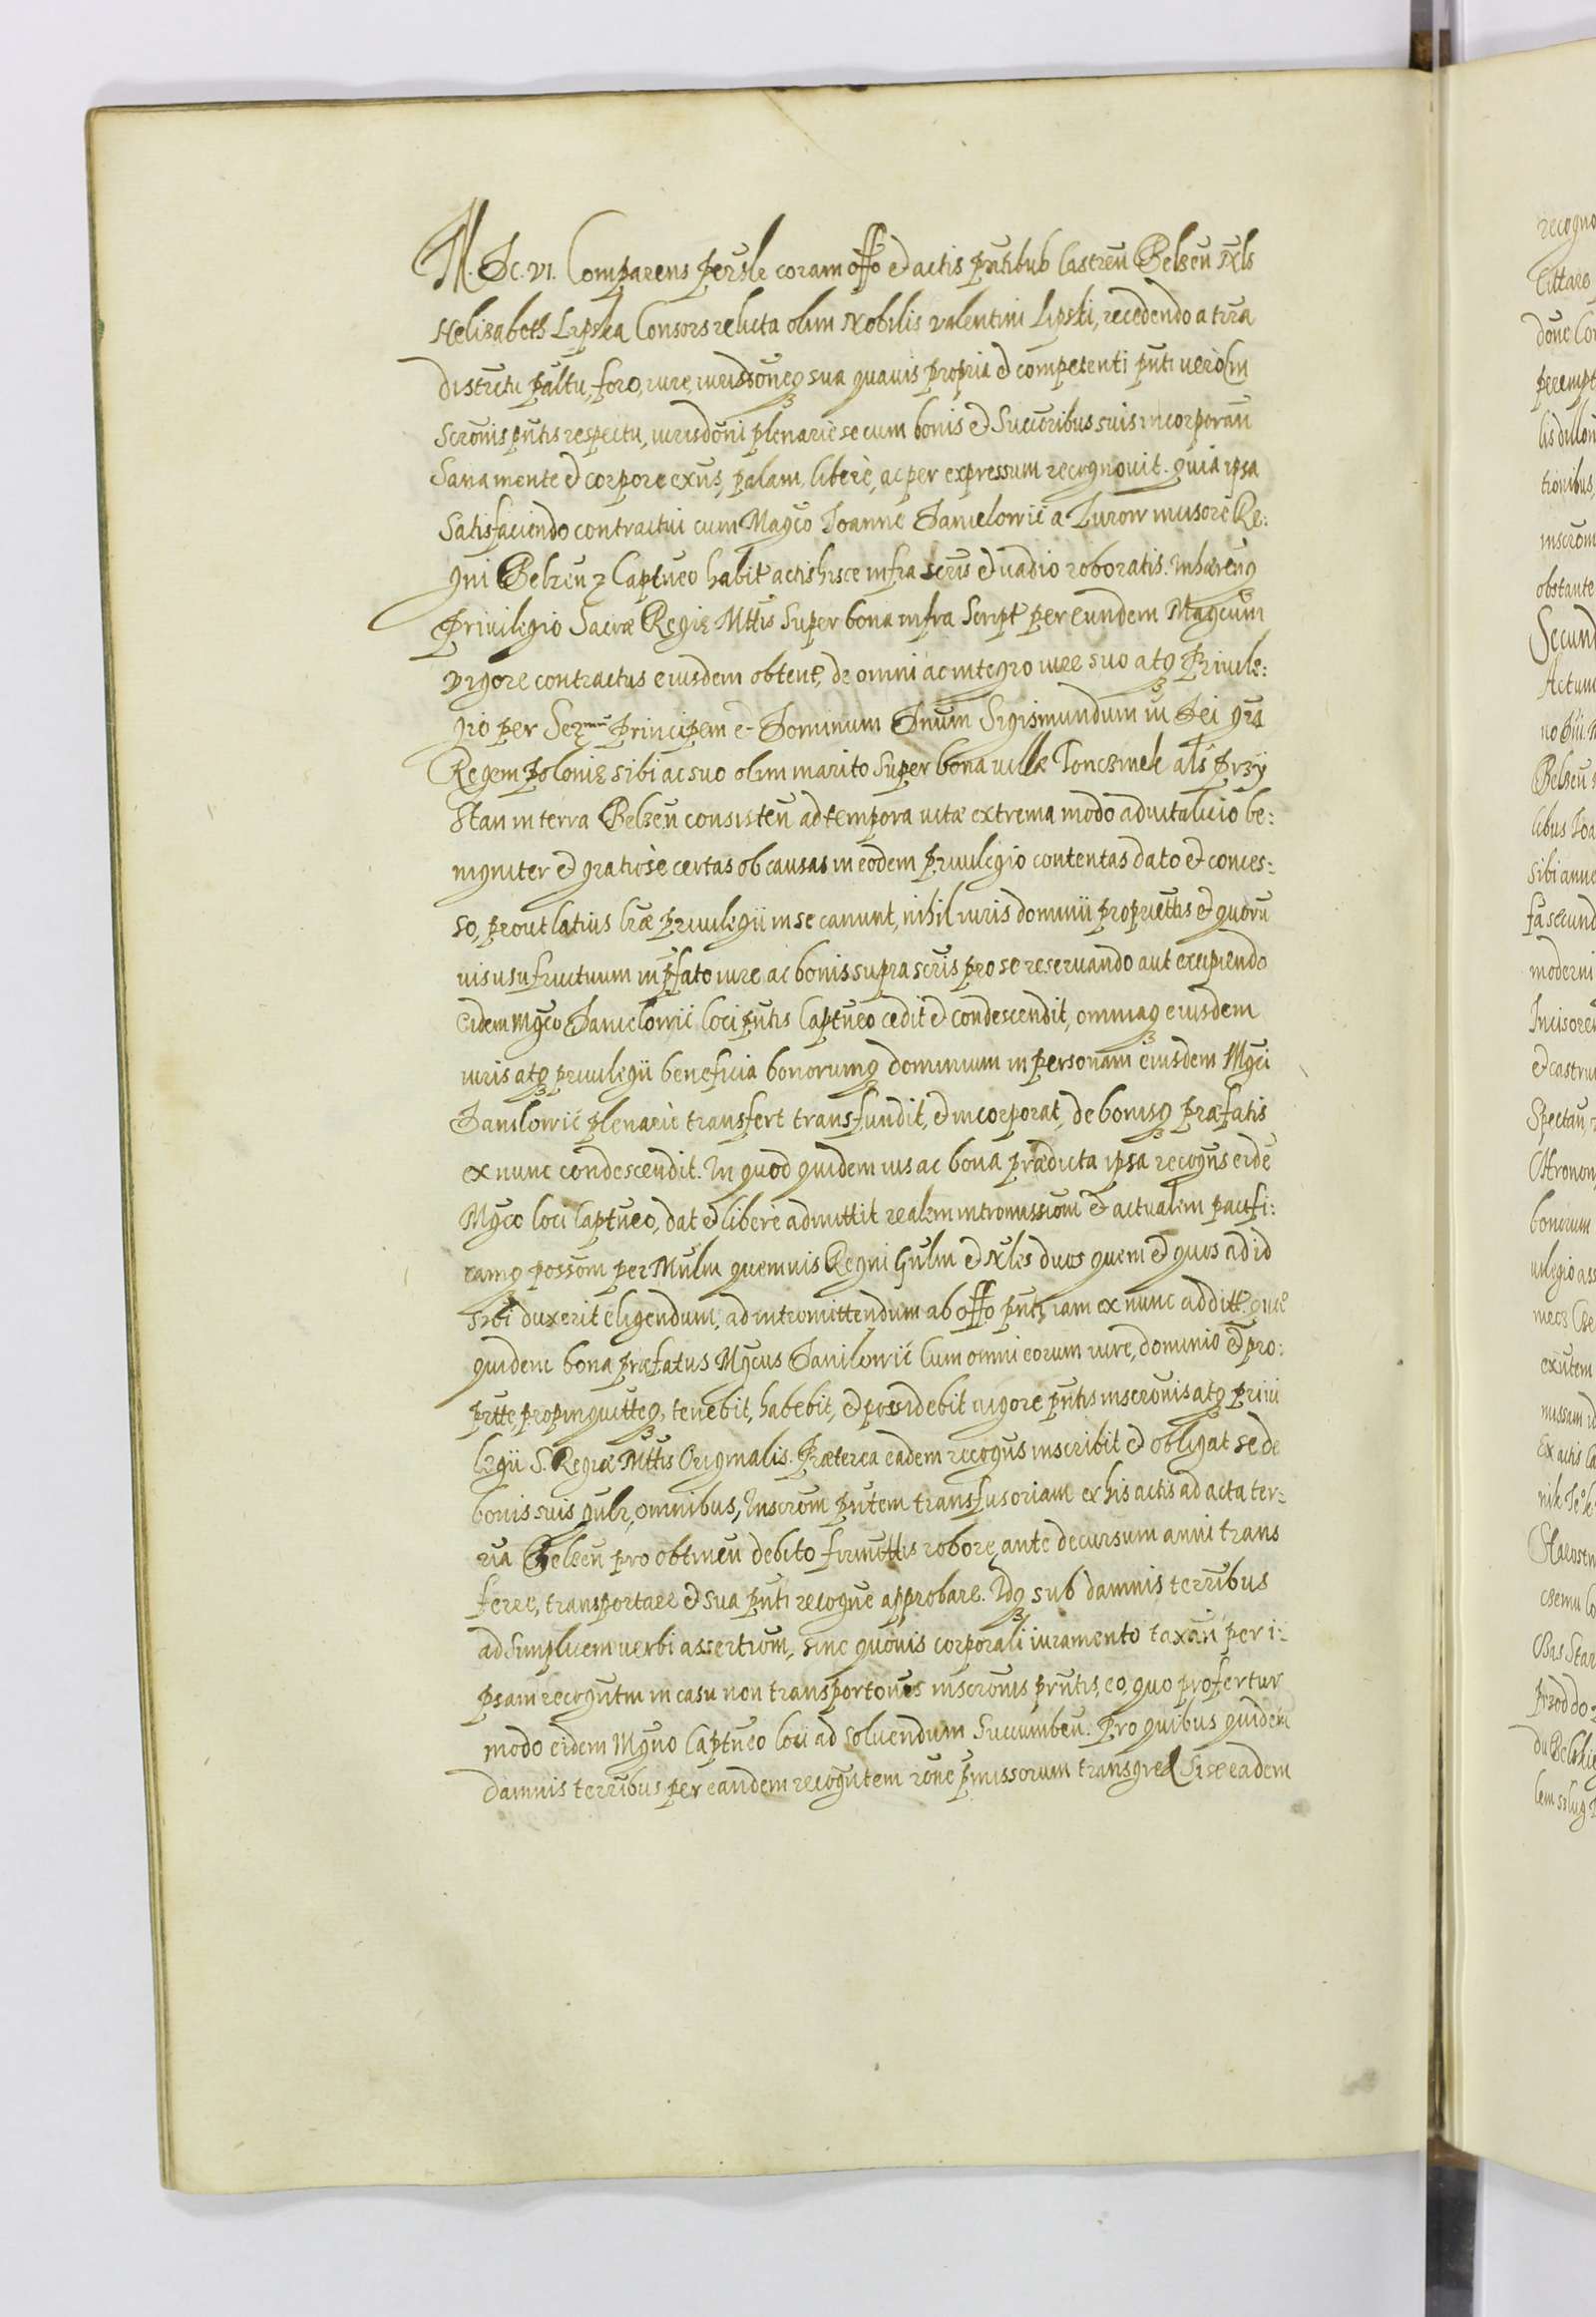 M. Dc. VI. Comparens pers̄le coram offo et actis pn̄tibus Castren̄ Belzen̄ N̄ls
Helizabeth Lipska Consors relicta olim Nobilis Valentini Lipski, recedendo a tr̄ra
districtu pāltu, foro, iure, iurisdōneq sua quavis propria et competenti pn̄ti vero In
scrōnis pn̄tis respectu, iurisdōni plenarie se cum bonis et Succēribus suis incorporan̄
Sana mente et corpore exn̄s, palam, libere, ac per expressum recognovit. quia ipsa
Satisfaciendo contractui cum Magco Joanne Danielowic a Zurow incisore Re:
gni Belzen̄ z Captn̄eo habit actis hisce infra scr̄is et vadio roboratis. Inhæren̄q
Privilegio Sacræ Regię Mttis Super bona infra Script per eundem Magcum
vigore contractus eiusdem obtent, de omni ac integro iure suo atq Privile:
gio per Ser̄mū Principem et Dominum Dnūm Sigismundum iii Dei gra
Regem Polonię sibi ac suo olim marito Super bona villæ Tonczmek als Przy
Stan in terra Belzen̄ consisten̄ ad tempora vitæ extrema modo advitalicio be:
nigniter et gratiose certas ob causas in eodem privilegio contentas dato et conces:
so, prout latius lræ privilegii in se canunt, nihil iuris dominii propriettis et quorū
vis usufructuum in p̄fato iure ac bonis supra scr̄is pro se reservando aut excipiendo
eidem Mgco Danielowic loci pn̄tis Captn̄eo cedit et condescendit, omniaq eiusdem
iuris atq privilegii beneficia bonorumq dominium in personam eiusdem Mgci
Danilowic plenarie transfert transfundit, et incorporat, de bonisq præfatis
ex nunc condescendit. In quod quidem ius ac bona prædicta ipsa recogn̄s eidē
Mgco loci Captn̄eo, dat et libere admittit realem intromissiōm et actualem pacifi:
camq possōm per Mn̄lm quemvis Regni Gn̄lm et N̄les duos quem et quos ad id
sibi duxerit eligendum, ad intromittendum ab offo pn̄ti iam ex nunc additt. quæ
quidem bona præfatus Mgcus Danilowic Cum omni eorum iure, dominio et pro:
prtte, propinquitteq, tenebit, habebit, et possidebit vigore pn̄tis inscrōnis atq privi
legii S. Regiæ Mttis Originalis. Præterea eadem recogn̄s inscribit et obligat se de
bonis suis gn̄lr, omnibus, Inscrōm pn̄tem transfusoriam ex his actis ad acta ter:
ria Belzen̄ pro obtinen̄ debito firmittis robore, ante decursum anni trans
ferre, transportare et sua pn̄ti recogne approbare. Idq sub damnis terr̄ibus
ad Simplicem verbi assertiōm, sine quōvis corporali iuramento taxan̄ per i:
psam recogn̄tm in casu non transportōnes inscrōnis prn̄tis, eo, quo profertur
modo eidem Mgnō Captn̄eo loci ad solvendum Succumben̄. Pro quibus quidem
damnis terr̄ibus per eandem recogn̄tem rōne p̄missorum transgred Si se eadem